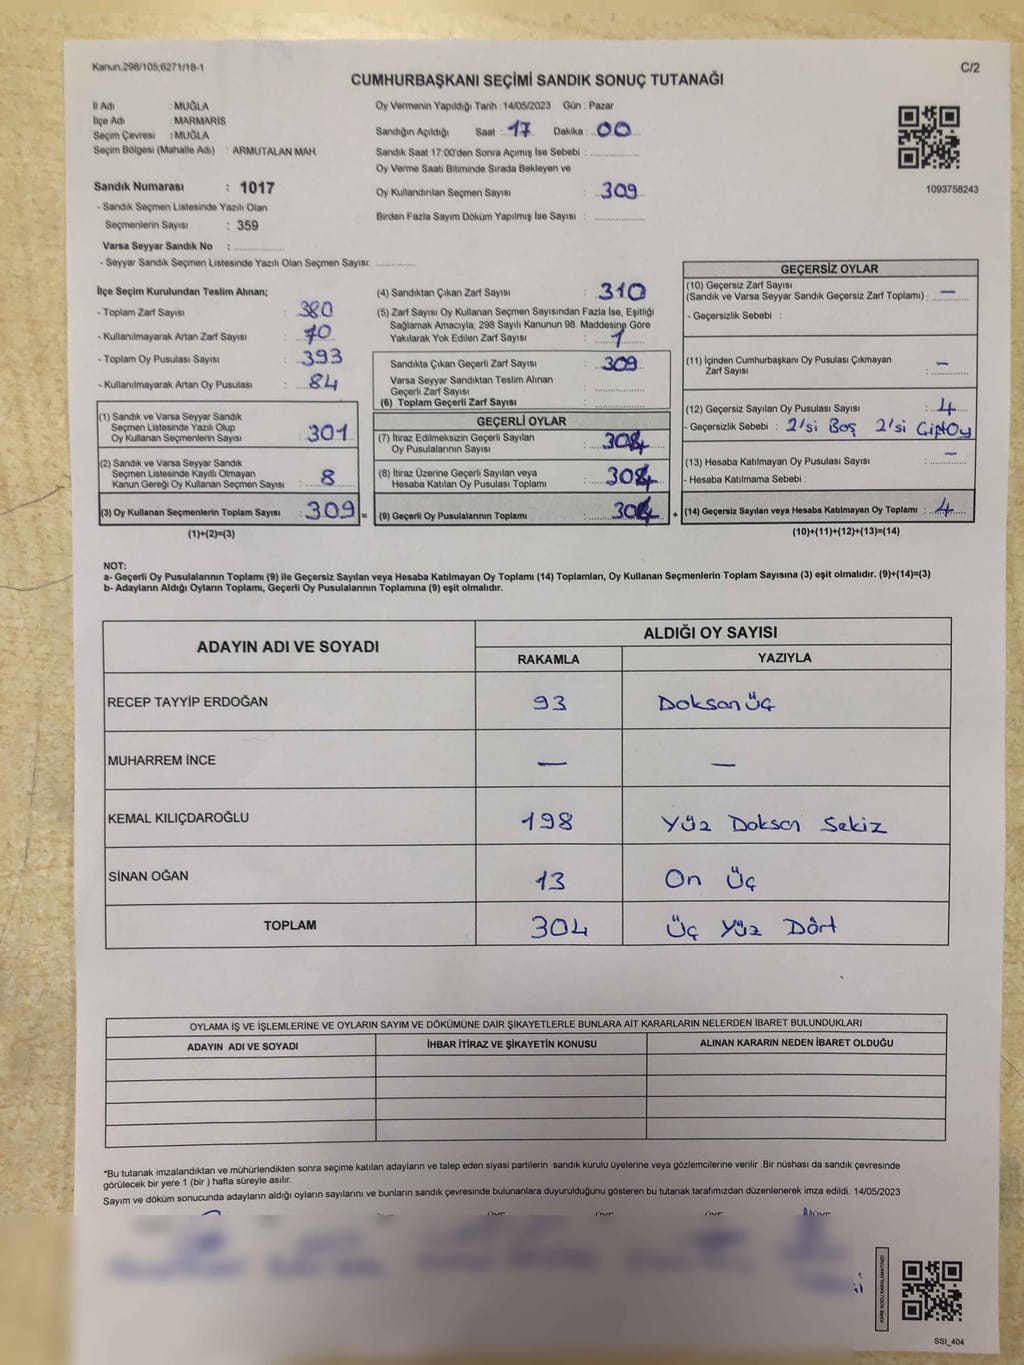 Kanun.298/105,6271/18-1
C/2
CUMHURBAŞKANI SEÇİMİ SANDIK SONUÇ TUTANAĞI
İl Adı : MUĞLA
İlçe Adı : MARMARİS
Seçim Çevresi : MUĞLA
Seçim Bölgesi (Mahalle Adı) : ARMUTALAN MAH.
Sandık Numarası : 1017
- Sandık Seçmen Listesinde Yazılı Olan
Seçmenlerin Sayısı : 359
Varsa Seyyar Sandık No : ..............
- Seyyar Sandık Seçmen Listesinde Yazılı Olan Seçmen Sayısı: .............
Oy Vermenin Yapıldığı Tarih : 14/05/2023 Gün : Pazar
Sandığın Açıldığı Saat : 17 Dakika : 00
Sandık Saat 17:00'den Sonra Açımış İse Sebebi : ..............
Oy Verme Saati Bitiminde Sırada Bekleyen ve
Oy Kullandırılan Seçmen Sayısı : 309
Birden Fazla Sayım Döküm Yapılmış İse Sayısı : ..............
1093758243
İlçe Seçim Kurulundan Teslim Alınan;
- Toplam Zarf Sayısı : 380
- Kullanılmayarak Artan Zarf Sayısı : 70
- Toplam Oy Pusulası Sayısı : 393
- Kullanılmayarak Artan Oy Pusulası : 84
(1) Sandık ve Varsa Seyyar Sandık
Seçmen Listesinde Yazılı Olup
Oy Kullanan Seçmenlerin Sayısı : 301
(2) Sandık ve Varsa Seyyar Sandık
Seçmen Listesinde Kayıtlı Olmayan
Kanun Gereği Oy Kullanan Seçmen Sayısı : 8
(3) Oy Kullanan Seçmenlerin Toplam Sayısı : 309 =
(1)+(2)=(3)
(4) Sandıktan Çıkan Zarf Sayısı : 310
(5) Zarf Sayısı Oy Kullanan Seçmen Sayısından Fazla İse, Eşitliği
Sağlamak Amacıyla, 298 Sayılı Kanunun 98. Maddesine Göre
Yakılarak Yok Edilen Zarf Sayısı : 1
Sandıkta Çıkan Geçerli Zarf Sayısı : 309
Varsa Seyyar Sandıktan Teslim Alınan
Geçerli Zarf Sayısı : ..............
(6) Toplam Geçerli Zarf Sayısı :
GEÇERLİ OYLAR
(7) İtiraz Edilmeksizin Geçerli Sayılan
Oy Pusulalarının Sayısı : 304
(8) İtiraz Üzerine Geçerli Sayılan veya
Hesaba Katılan Oy Pusulası Toplamı : 304
(9) Geçerli Oy Pusulalarının Toplamı : 304 +
GEÇERSİZ OYLAR
(10) Geçersiz Zarf Sayısı
(Sandık ve Varsa Seyyar Sandık Geçersiz Zarf Toplamı) : —
- Geçersizlik Sebebi :
(11) İçinden Cumhurbaşkanı Oy Pusulası Çıkmayan
Zarf Sayısı : —
(12) Geçersiz Sayılan Oy Pusulası Sayısı : 4
- Geçersizlik Sebebi : 2'si Boş 2'si Çift Oy
(13) Hesaba Katılmayan Oy Pusulası Sayısı : —
- Hesaba Katılmama Sebebi :
(14) Geçersiz Sayılan veya Hesaba Katılmayan Oy Toplamı : 4
(10)+(11)+(12)+(13)=(14)
NOT:
a- Geçerli Oy Pusulalarının Toplamı (9) ile Geçersiz Sayılan veya Hesaba Katılmayan Oy Toplamı (14) Toplamları, Oy Kullanan Seçmenlerin Toplam Sayısına (3) eşit olmalıdır. (9)+(14)=(3)
b- Adayların Aldığı Oyların Toplamı, Geçerli Oy Pusulalarının Toplamına (9) eşit olmalıdır.
ADAYIN ADI VE SOYADI ALDIĞI OY SAYISI
RAKAMLA YAZIYLA
RECEP TAYYİP ERDOĞAN 93 Doksan üç
MUHARREM İNCE — —
KEMAL KILIÇDAROĞLU 198 Yüz Doksan Sekiz
SİNAN OĞAN 13 On Üç
TOPLAM 304 Üç Yüz Dört
OYLAMA İŞ VE İŞLEMLERİNE VE OYLARIN SAYIM VE DÖKÜMÜNE DAİR ŞİKAYETLERLE BUNLARA AİT KARARLARIN NELERDEN İBARET BULUNDUKLARI
ADAYIN ADI VE SOYADI İHBAR İTİRAZ VE ŞİKAYETİN KONUSU ALINAN KARARIN NEDEN İBARET OLDUĞU
*Bu tutanak imzalandıktan ve mühürlendikten sonra seçime katılan adayların ve talep eden siyasi partilerin sandık kurulu üyelerine veya gözlemcilerine verilir .Bir nüshası da sandık çevresinde
görülecek bir yere 1 (bir ) hafta süreyle asılır.
Sayım ve döküm sonucunda adayların aldığı oyların sayılarını ve bunların sandık çevresinde bulunanlara duyurulduğunu gösteren bu tutanak tarafımızdan düzenlenerek imza edildi. 14/05/2023
SSI_404